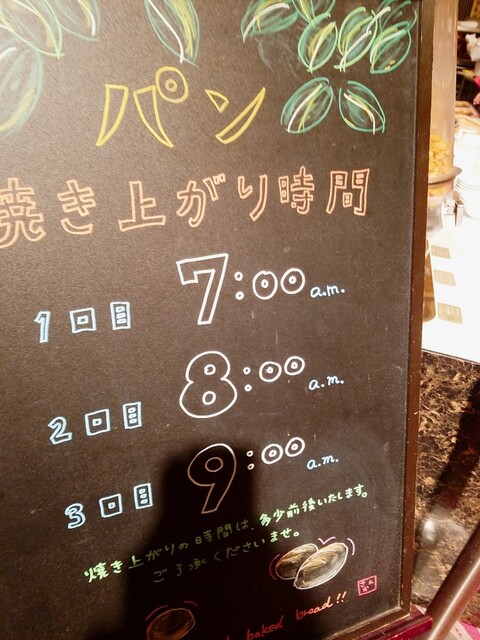 パン
焼き上がり時間
1回目 7:00 a.m.
2回目 8:00 a.m.
3回目 9:00 a.m.
焼き上がりの時間は、多少前後いたします。
ご了承くださいませ。
baked bread!!